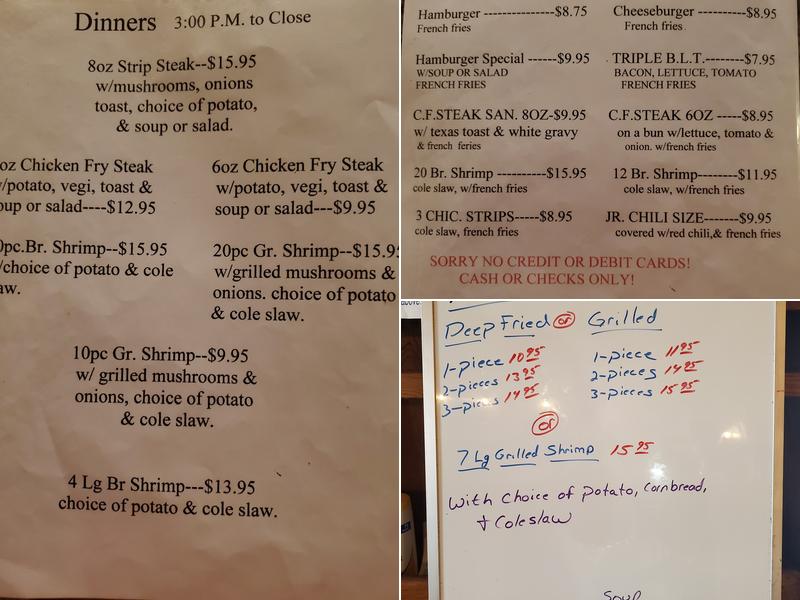 Dinners 3:00 P.M. to Close
8oz Strip Steak--$15.95
w/mushrooms, onions
toast, choice of potato,
& soup or salad.
oz Chicken Fry Steak
/potato, vegi, toast &
oup or salad----$12.95
6oz Chicken Fry Steak
w/potato, vegi, toast &
soup or salad---$9.95
0pc.Br. Shrimp--$15.95
/choice of potato & cole
aw.
20pc Gr. Shrimp--$15.9
w/grilled mushrooms &
onions. choice of potato
& cole slaw.
10pc Gr. Shrimp--$9.95
w/ grilled mushrooms &
onions, choice of potato
& cole slaw.
4 Lg Br Shrimp---$13.95
choice of potato & cole slaw.
Hamburger --------------$8.75
French fries
Cheeseburger -----$8.95
French fries
Hamburger Special ------$9.95
W/SOUP OR SALAD
FRENCH FRIES
TRIPLE B.L.T.--------$7.95
BACON, LETTUCE, TOMATO
FRENCH FRIES
C.F.STEAK SAN. 8OZ-$9.95
w/ texas toast & white gravy
& french feries
C.F.STEAK 6OZ -----$8.95
on a bun w/lettuce, tomato &
onion. w/french fries
20 Br. Shrimp ----------$15.95
cole slaw, w/french fries
12 Br. Shrimp--------$11.95
cole slaw, w/french fries
3 CHIC. STRIPS-----$8.95
cole slaw, french fries
JR. CHILI SIZE-------$9.95
covered w/red chili,& french fries
SORRY NO CREDIT OR DEBIT CARDS!
CASH OR CHECKS ONLY!
Deep Fried or Grilled
1-piece 10 95
2-pieces 13 95
3-pieces 14 95
1-piece 11 95
2-pieces 14 95
3-pieces 15 95
or
7 Lg Grilled Shrimp 15 95
With Choice of Potato, Cornbread,
+ Coleslaw
Soup